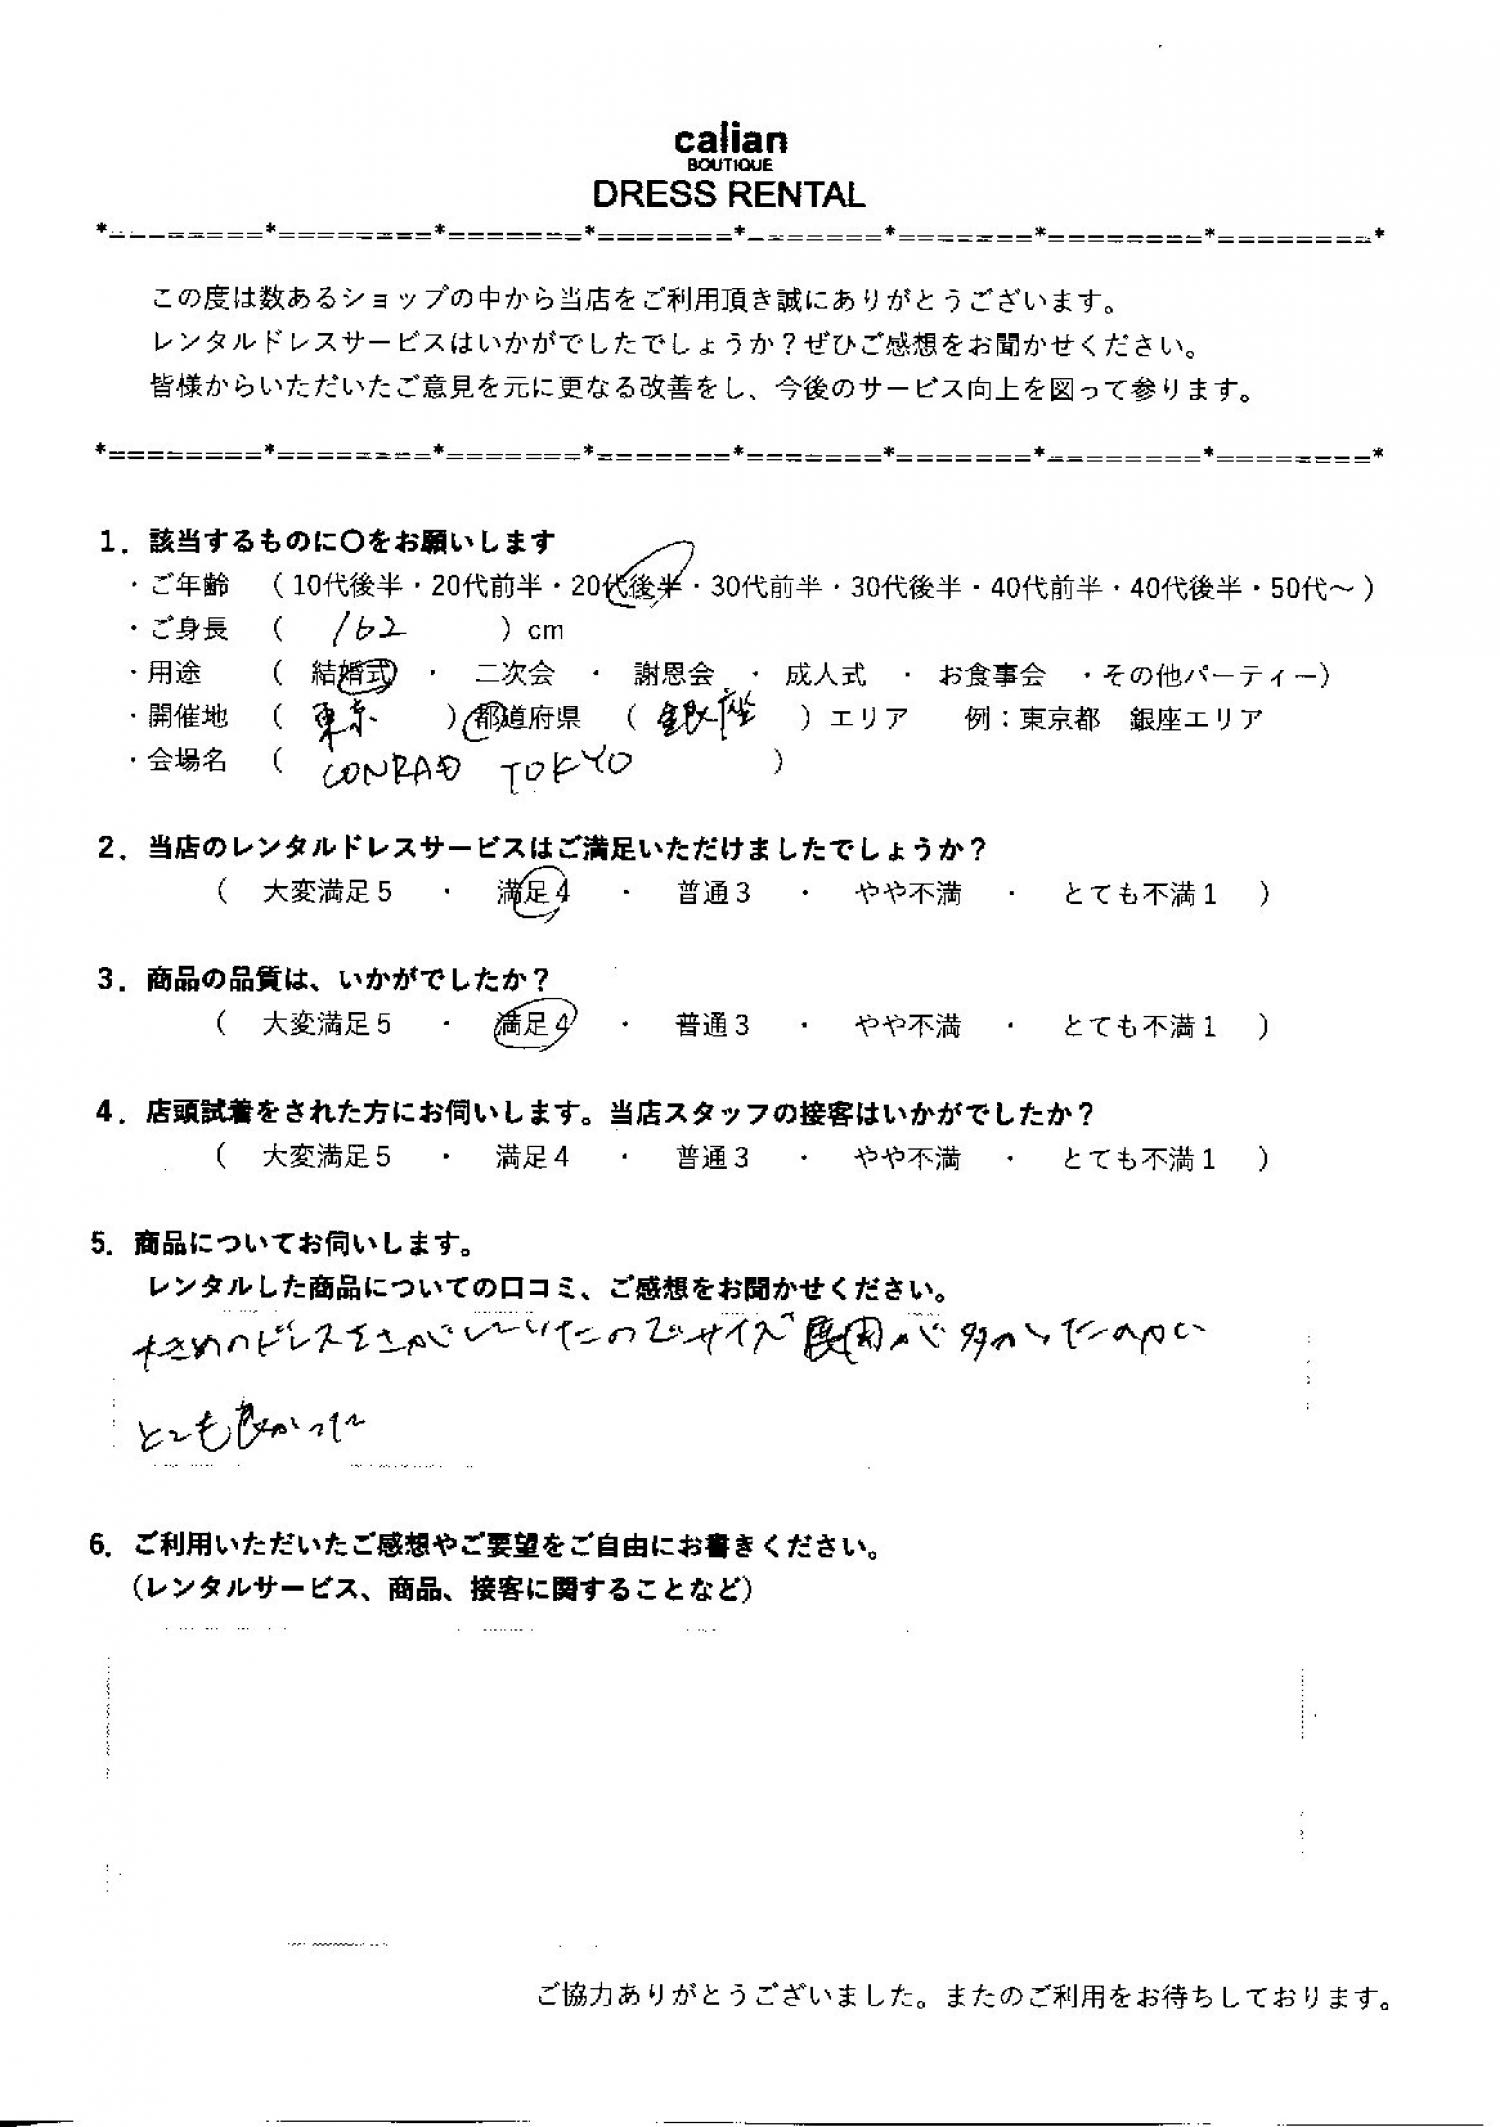 calian
BOUTIQUE
DRESS RENTAL
*========*========*=======*=======*=======*=======*========*========*
この度は数あるショップの中から当店をご利用頂き誠にありがとうございます。
レンタルドレスサービスはいかがでしたでしょうか？ぜひご感想をお聞かせください。
皆様からいただいたご意見を元に更なる改善をし、今後のサービス向上を図って参ります。
*========*========*=======*=======*=======*=======*========*========*
1．該当するものに〇をお願いします
・ご年齢 （10代後半・20代前半・20代後半・30代前半・30代後半・40代前半・40代後半・50代～）
・ご身長 （ 162 ）cm
・用途 （ 結婚式 ・ 二次会 ・ 謝恩会 ・ 成人式 ・ お食事会 ・その他パーティー）
・開催地 （ 東京 ）都道府県 （ 銀座 ）エリア 例：東京都 銀座エリア
・会場名 （ CONRAD TOKYO ）
2．当店のレンタルドレスサービスはご満足いただけましたでしょうか？
（ 大変満足5 ・ 満足4 ・ 普通3 ・ やや不満 ・ とても不満1 ）
3．商品の品質は、いかがでしたか？
（ 大変満足5 ・ 満足4 ・ 普通3 ・ やや不満 ・ とても不満1 ）
4．店頭試着をされた方にお伺いします。当店スタッフの接客はいかがでしたか？
（ 大変満足5 ・ 満足4 ・ 普通3 ・ やや不満 ・ とても不満1 ）
5．商品についてお伺いします。
レンタルした商品についての口コミ、ご感想をお聞かせください。
大きめのドレスをさがしていたのでサイズ展開が多かったのが
とても良かった
6．ご利用いただいたご感想やご要望をご自由にお書きください。
（レンタルサービス、商品、接客に関することなど）
ご協力ありがとうございました。またのご利用をお待ちしております。